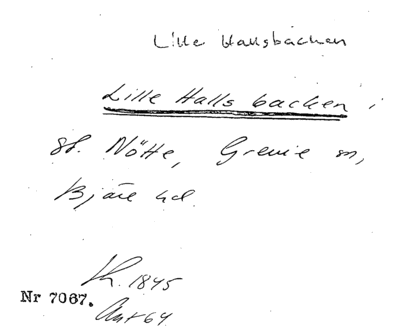 Lille Hallsbacken
Lille Halls backen i
gd. Nötte, Grevie sn,
Bjäre hd
1845
Nr 7067.
Ant 64